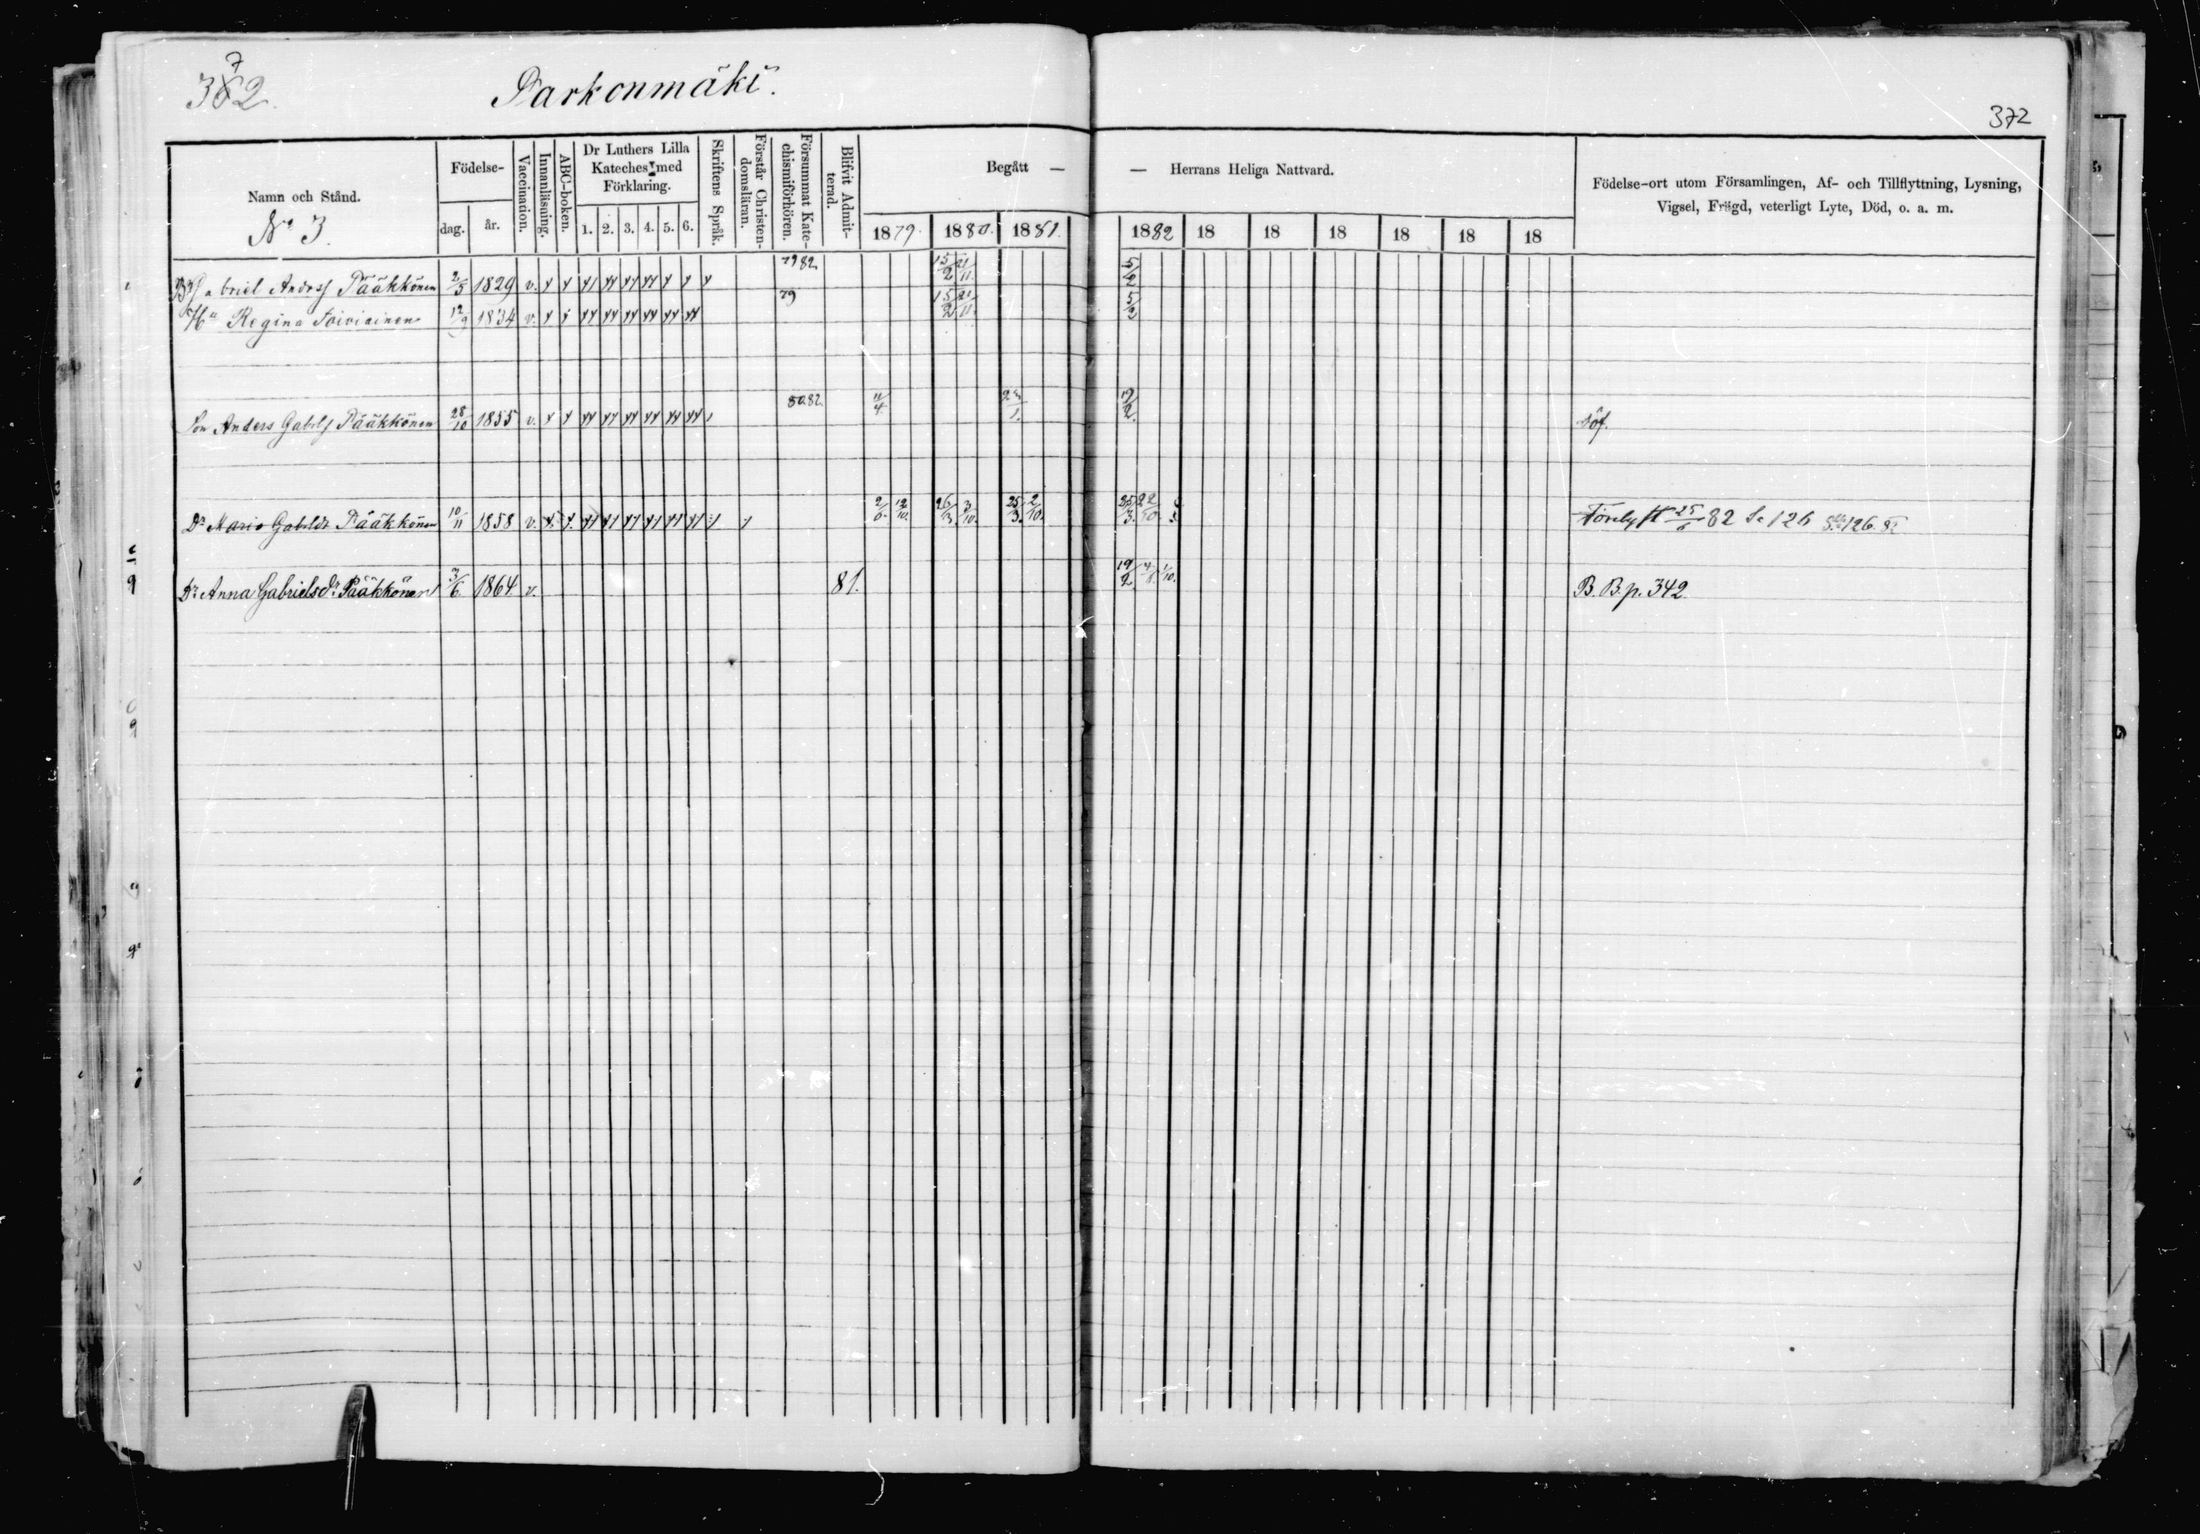 372
Parkonmäki.
372
Namn och Stånd.
No 3.
Födelse-
dag. år.
Vaccination.
Innanläsning.
ABC-boken.
Dr Luthers Lilla
Kateches med
Förklaring.
1. 2. 3. 4. 5. 6.
Skriftens Språk.
Förstår Christen-
domsläran.
Försummat Kate-
chismiförhören.
Blifvit Admit-
terad.
Begått —
— Herrans Heliga Nattvard.
1879. 1880. 1881. 1882 18 18 18 18 18 18
Födelse-ort utom Församlingen, Af- och Tillflyttning, Lysning,
Vigsel, Frägd, veterligt Lyte, Död, o. a. m.
Gabriel Andrsf Pääkkönen 2/5 1829 v. 79 82 15/2 21/11. 5/2
Hu Regina Toiviainen 12/9 1834 v. 79 15/2 21/11. 5/2
Son Anders Gabrlsf Pääkkönen 28/10 1855 v. 80 82 11/4 23/1. 19/2. söf.
Dr Maria Gabrlsdr Pääkkönen 10/11 1858 v. 2/6. 12/10. 26/3 3/10. 25/3. 2/10. 25/3. 22/10. 25/6 82 S. 126
Dr Anna Gabrielsdr Pääkkönen 3/6. 1864 v. 81. 19/2. 1/10. B. B. p. 342